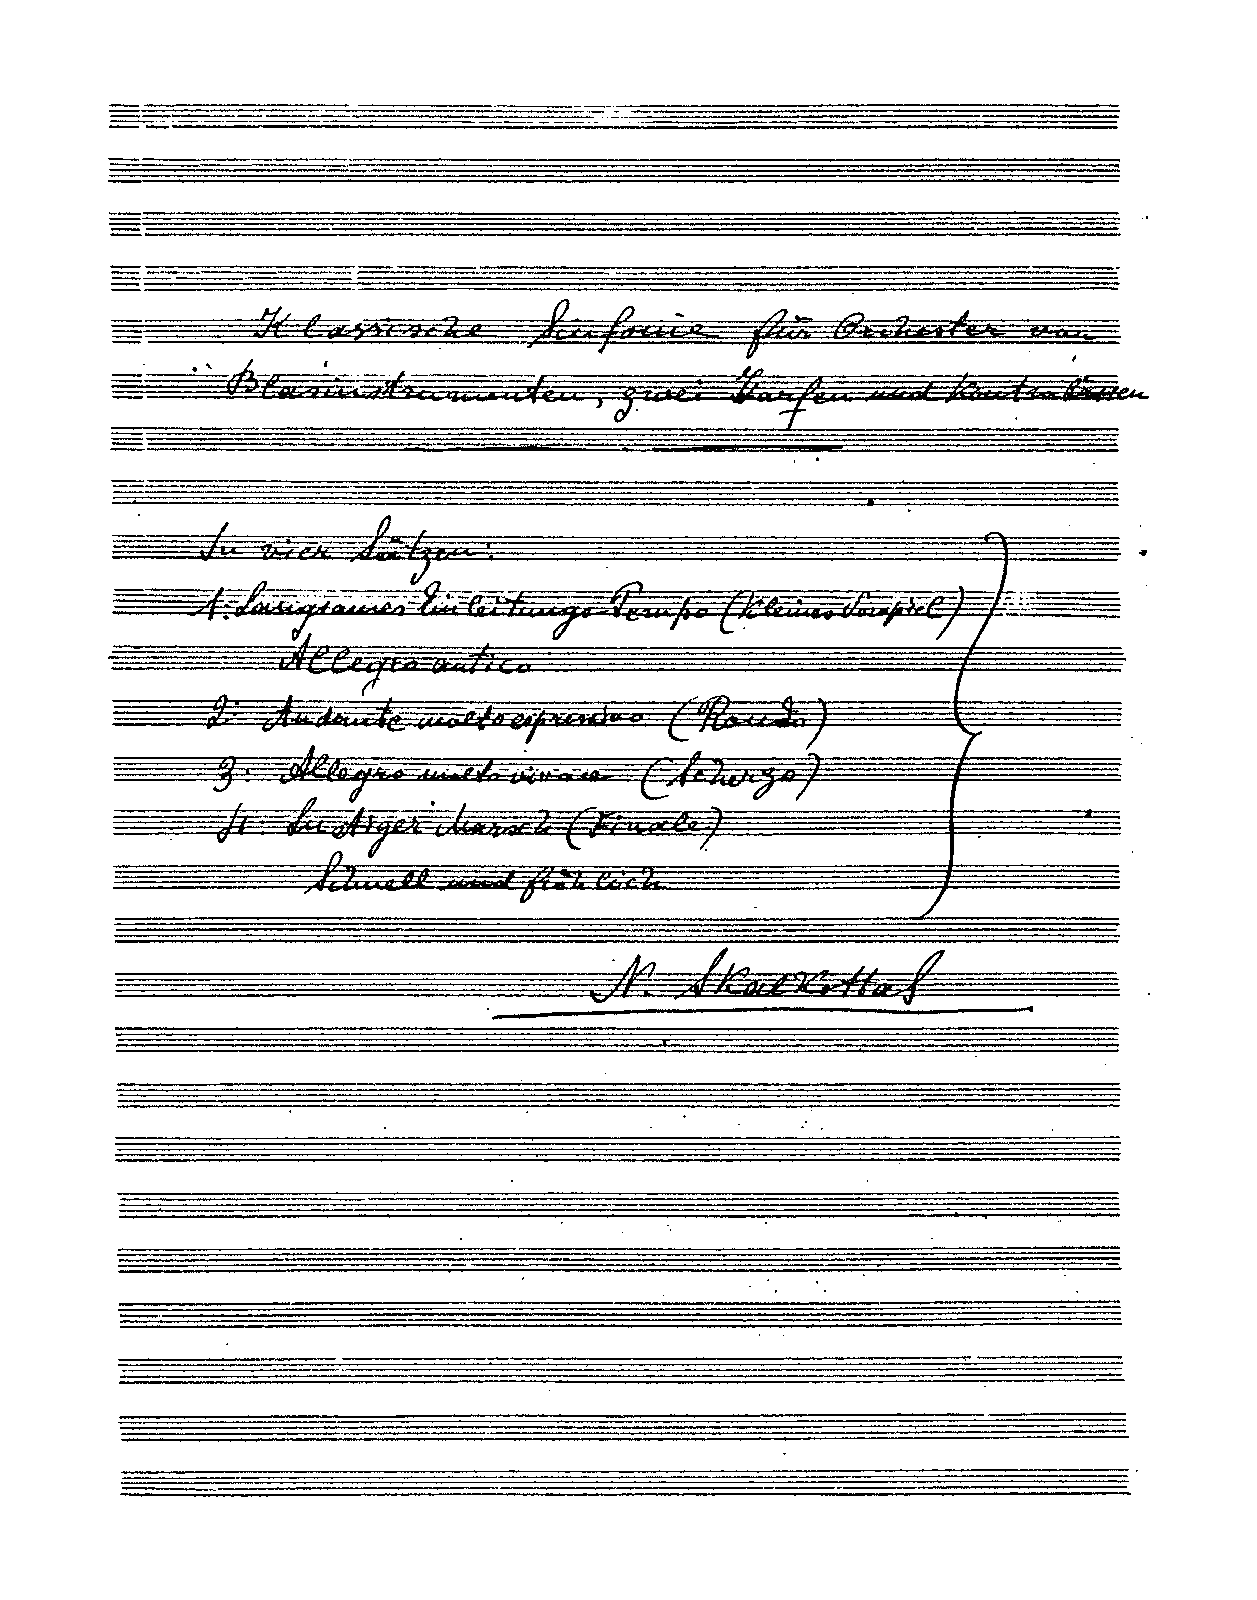 Klassische Sinfonie für Orchester von
Blasinstrumenten, zwei Harfen und Kontrabässen
In vier Sätzen:
1. Langsames Einleitungs-Tempo (Kleines Vorspiel)
Allegro antico
2. Andante molto espressivo (Rondo)
3. Allegro molto vivace (Scherzo)
4. Lustiger Marsch (Finale)
Schnell und fröhlich
N. Skalkottas